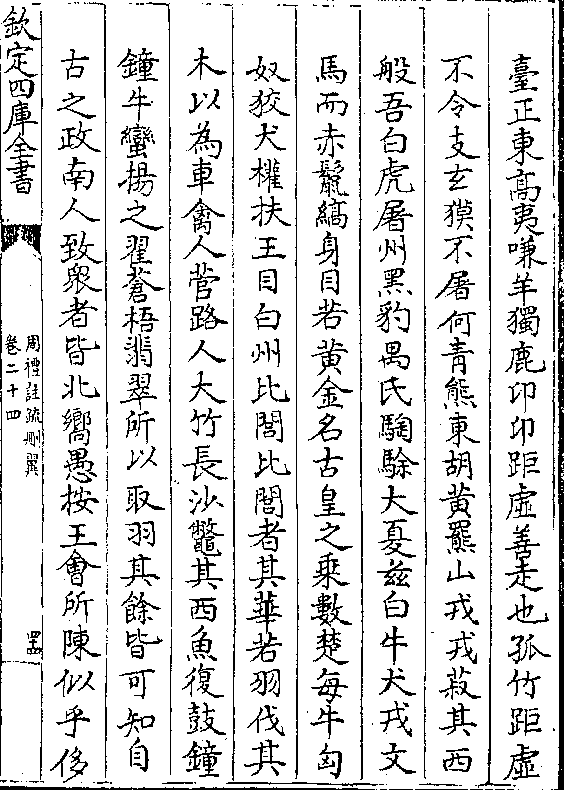 臺正東高夷嗛羊獨鹿卭卭距虛善走也孤竹距虛
不令支玄獏不屠何青熊東胡黃羆山戎戎菽其西
般吾白虎屠州黑豹禺氏騊駼大夏兹白牛犬戎文
馬而赤鬛縞身目若黃金名古皇之乘數楚每牛匈
奴狡犬權扶王目白州比閭比閭者其華若羽伐其
木以為車禽人菅路人大竹長沙鼈其西魚復鼓鐘
鐘牛蠻揚之翟蒼梧翡翠所以取羽其餘皆可知自
古之政南人致衆者皆北嚮愚按王會所陳似乎侈
欽定四庫全書
周禮註疏刪翼
卷二十四